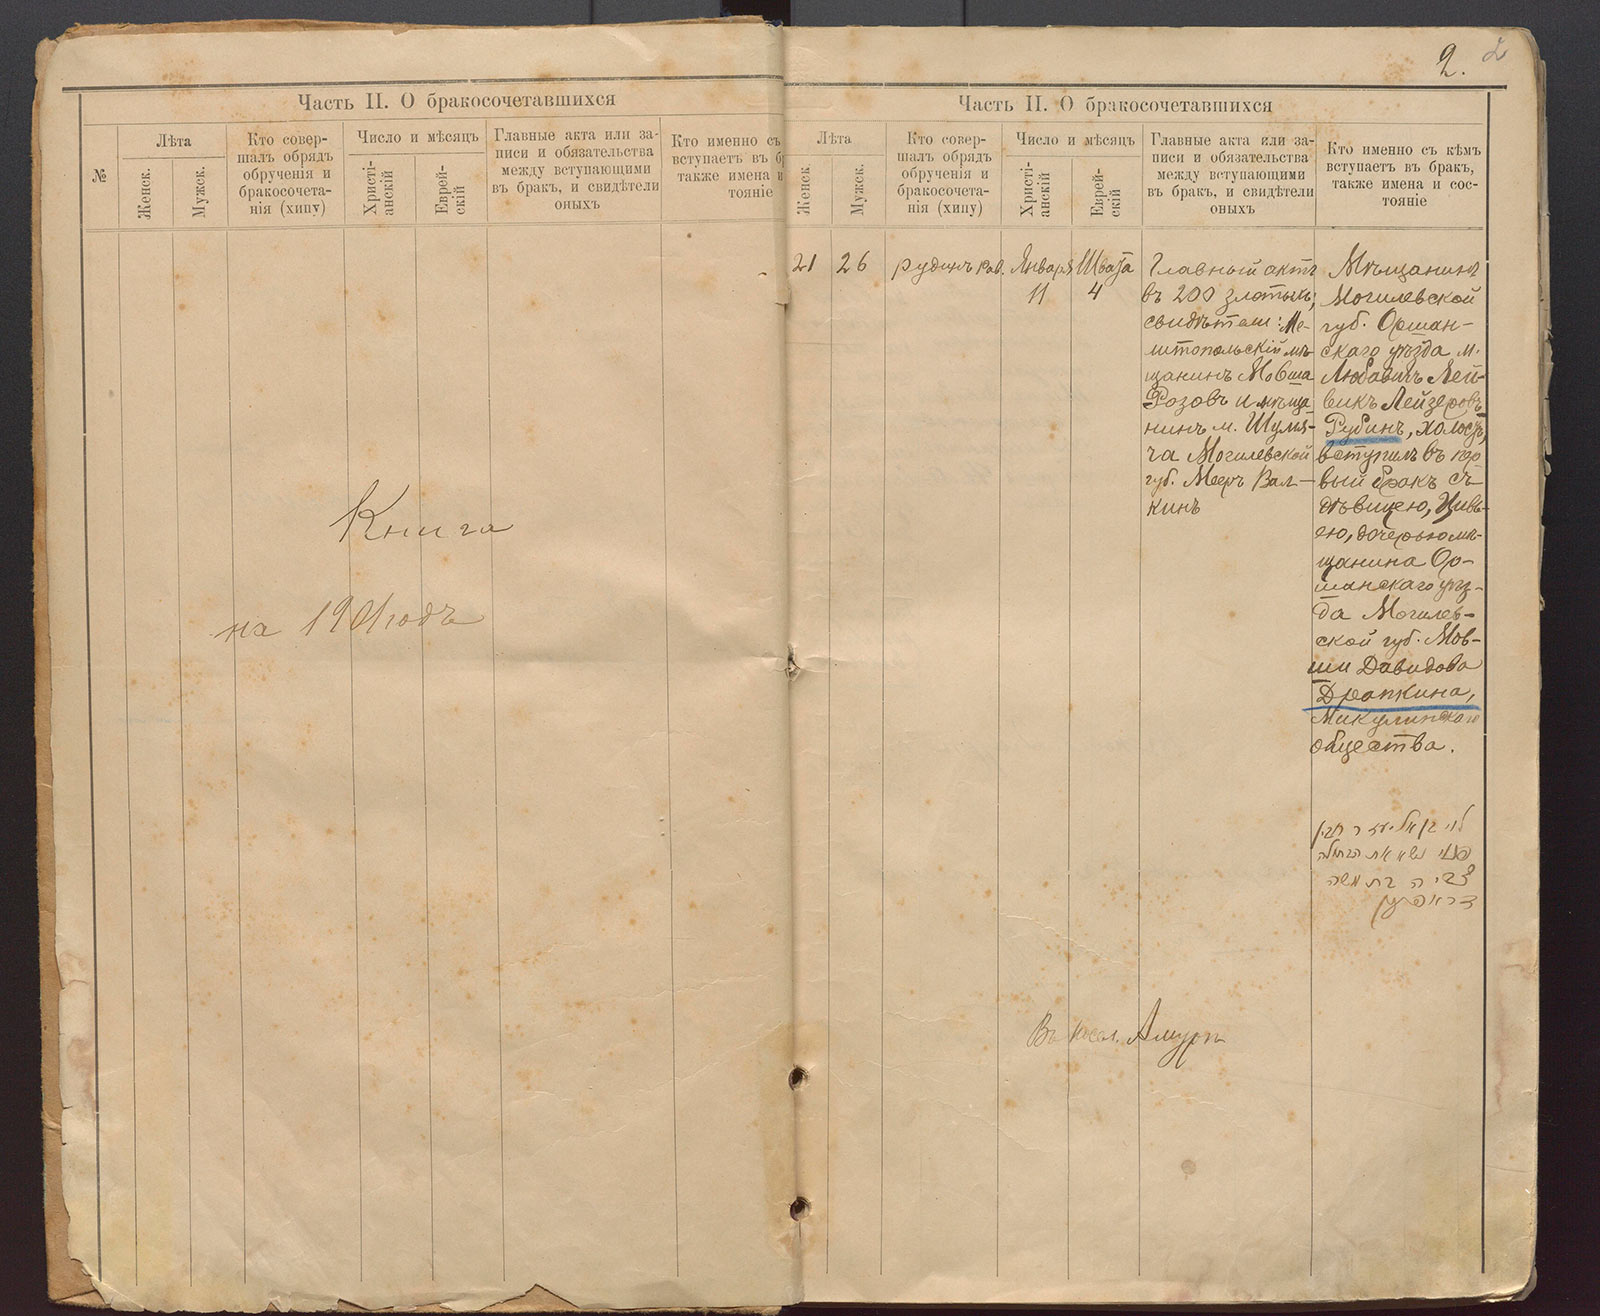 Часть II. О бракосочетавшихся
№
Лѣта
Женск.
Мужск.
Кто совер-
шалъ обрядъ
обрученія и
бракосочета-
нія (хипу)
Число и мѣсяцъ
Христі-
анскій
Еврей-
скій
Главные акта или за-
писи и обязательства
между вступающими
въ бракъ, и свидѣтели
оныхъ
Кто именно съ
вступаетъ въ б
также имена и
тояніе
Книга
на 1901 годъ
2.
2
Часть II. О бракосочетавшихся
Лѣта
Женск
Мужск.
Кто совер-
шалъ обрядъ
обрученія и
бракосочета-
нія (хипу)
Число и мѣсяцъ
Христі-
анскій
Еврей-
скій
Главные акта или за-
писи и обязательства
между вступающими
въ бракъ, и свидѣтели
оныхъ
Кто именно съ кѣмъ
вступаетъ въ бракъ,
также имена и сос-
тояніе
21
26
рав.
Января
11
Швата
4
Главный актъ
въ 200 злотыхъ;
свидѣтели: Ме-
литопольскій мѣ-
щанинъ Мовша
Розовъ и мѣща
нинъ м. Шумя-
ча Могилевской
губ. Меер Вал-
кинъ
Мѣщанинъ
Могилевской
губ. Оршан-
скаго уѣзда м.
Любавичъ Лей-
викъ Лейзеровъ
Рубинъ, холостъ,
вступилъ въ пер
вый бракъ съ
дѣвицею, Цивь-
ею, дочерью мѣ-
щанина Ор-
шанскаго уѣз-
да Могилев-
ской губ. Мов-
ши Давидова
Драпкина,
Микулинскаго
общества.
לוי בן אליעזר רובין
פנוי נשא את הבתולה
צביה בת משה
דראפקין
Въ посел. Амуръ